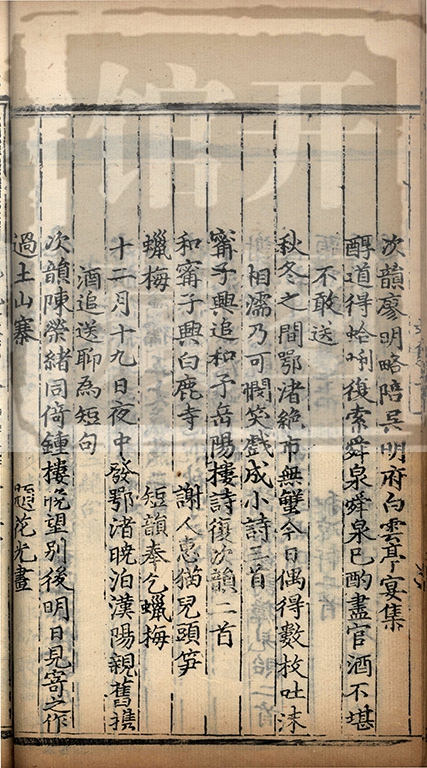 次韻廖明略陪吳明府白雲亭宴集
醇道得蛤蜊復索舜泉舜泉已酌盡官酒不堪
不敢送
秋冬之間鄂渚絕市無蟹今日偶得數枚吐沫
相濡乃可憫笑戲成小詩三首
甯子興追和予岳陽樓詩復次韻二首
和甯子興白鹿寺 謝人惠猫兒頭笋
蠟梅 短韻奉乞蠟梅
十二月十九日夜中發鄂渚曉泊漢陽親舊攜
酒追送聊為短句
次韻陳榮緒同倚鍾樓晚望別後明日見寄之作
過土山寨 題花光畫
开
馆